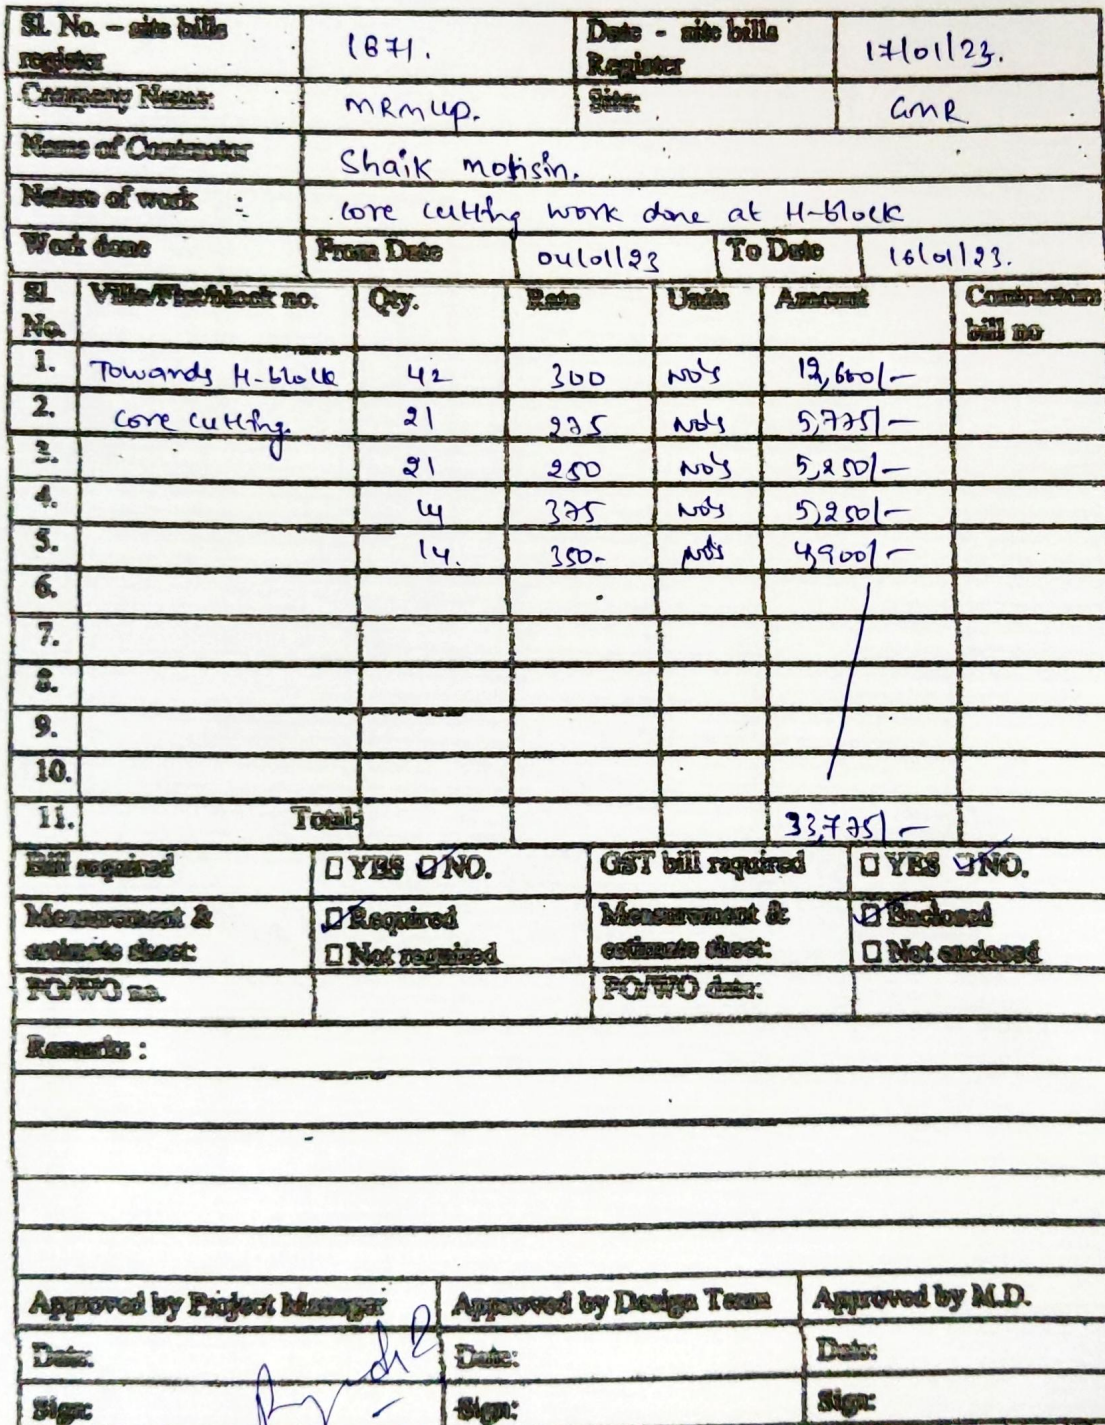 Sl. No. – site bills register 1671. Date - site bills Register 17/01/23.
Company Name: MRMLLP. Site: GMR
Name of Contractor Shaik mohsin.
Nature of work : core cutting work done at H-block
Work done From Date 04/01/23 To Date 16/01/23.
Sl. No. Villa/Flat/block no. Qty. Rate Units Amount Contractors bill no
1. Towards H-block 42 300 No's 12,600/-
2. core cutting. 21 275 No's 5,775/-
3. 21 250 No's 5,250/-
4. 14 375 No's 5,250/-
5. 14. 350- No's 4,900/-
6.
7.
8.
9.
10.
11. Total: 33,775/-
Bill required □ YES ☑ NO. GST bill required □ YES ☑ NO.
Measurement & estimate sheet: ☑ Required □ Not required Measurement & estimate sheet: ☑ Enclosed □ Not enclosed
PO/WO no. PO/WO date:
Remarks :
Approved by Project Manager Approved by Design Team Approved by M.D.
Date: Date: Date:
Sign: Sign: Sign: